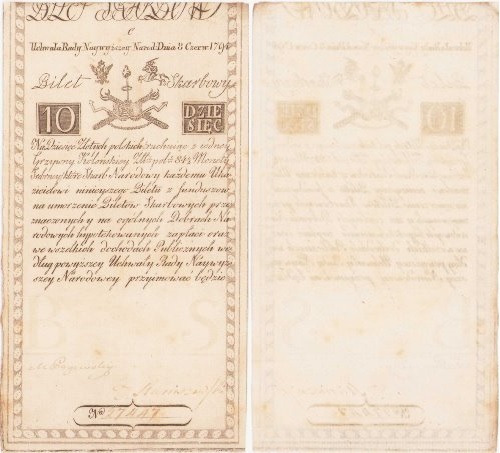 C
Uchwała Rady Naywyższey Narod: Dnia 8 Czerw: 1794
Bilet Skarbowy
10 DZIE SIĘC
Na Dziesięc Złotych polskich rachuiąc z iedney
Grzywny Kolońskiey Złł: pol: 84½ Monetą
Srebrną które Skarb Narodowy każdemu Oka-
zicielowi ninieyszego Biletu z funduszow
na umorzenie Biletow Skarbowych prze
znaczonych y na ogolnych Dobrach Na-
rodowych hypotekowanych zapłaci oraz
we wszelkich dochodach Publicznych we-
dług powyższey Uchwały Rady Naywyż-
szey Narodowey przyimować będzie
No 17447